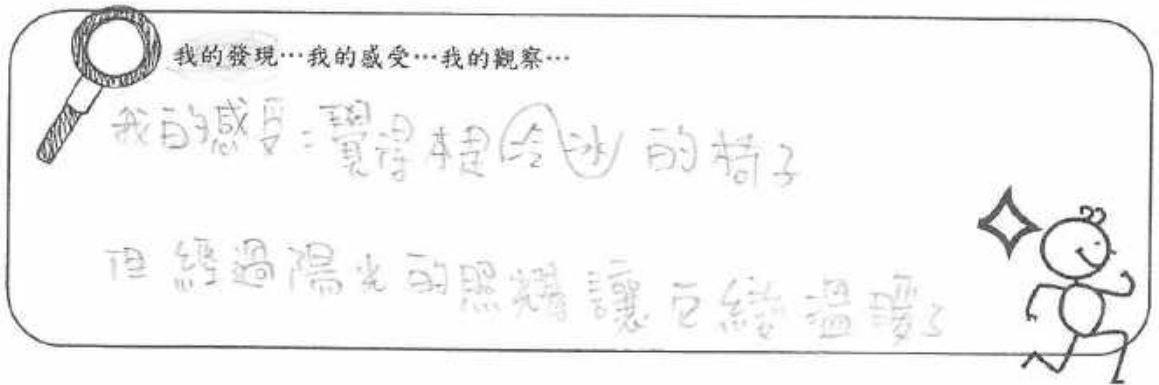 我的發現…我的感受…我的觀察…
我的感受:覺得本是冷冰的椅子
但經過陽光的照耀讓它變溫暖了